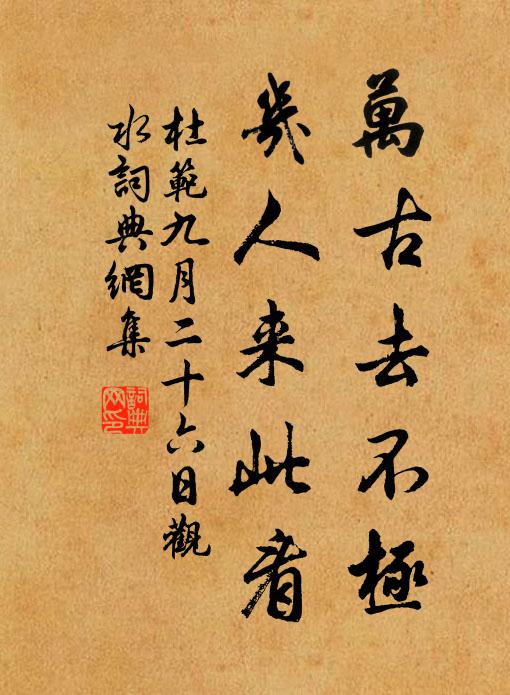 萬古去不極
幾人来此看
杜範九月二十六日觀
水詞典網集
詞典网印